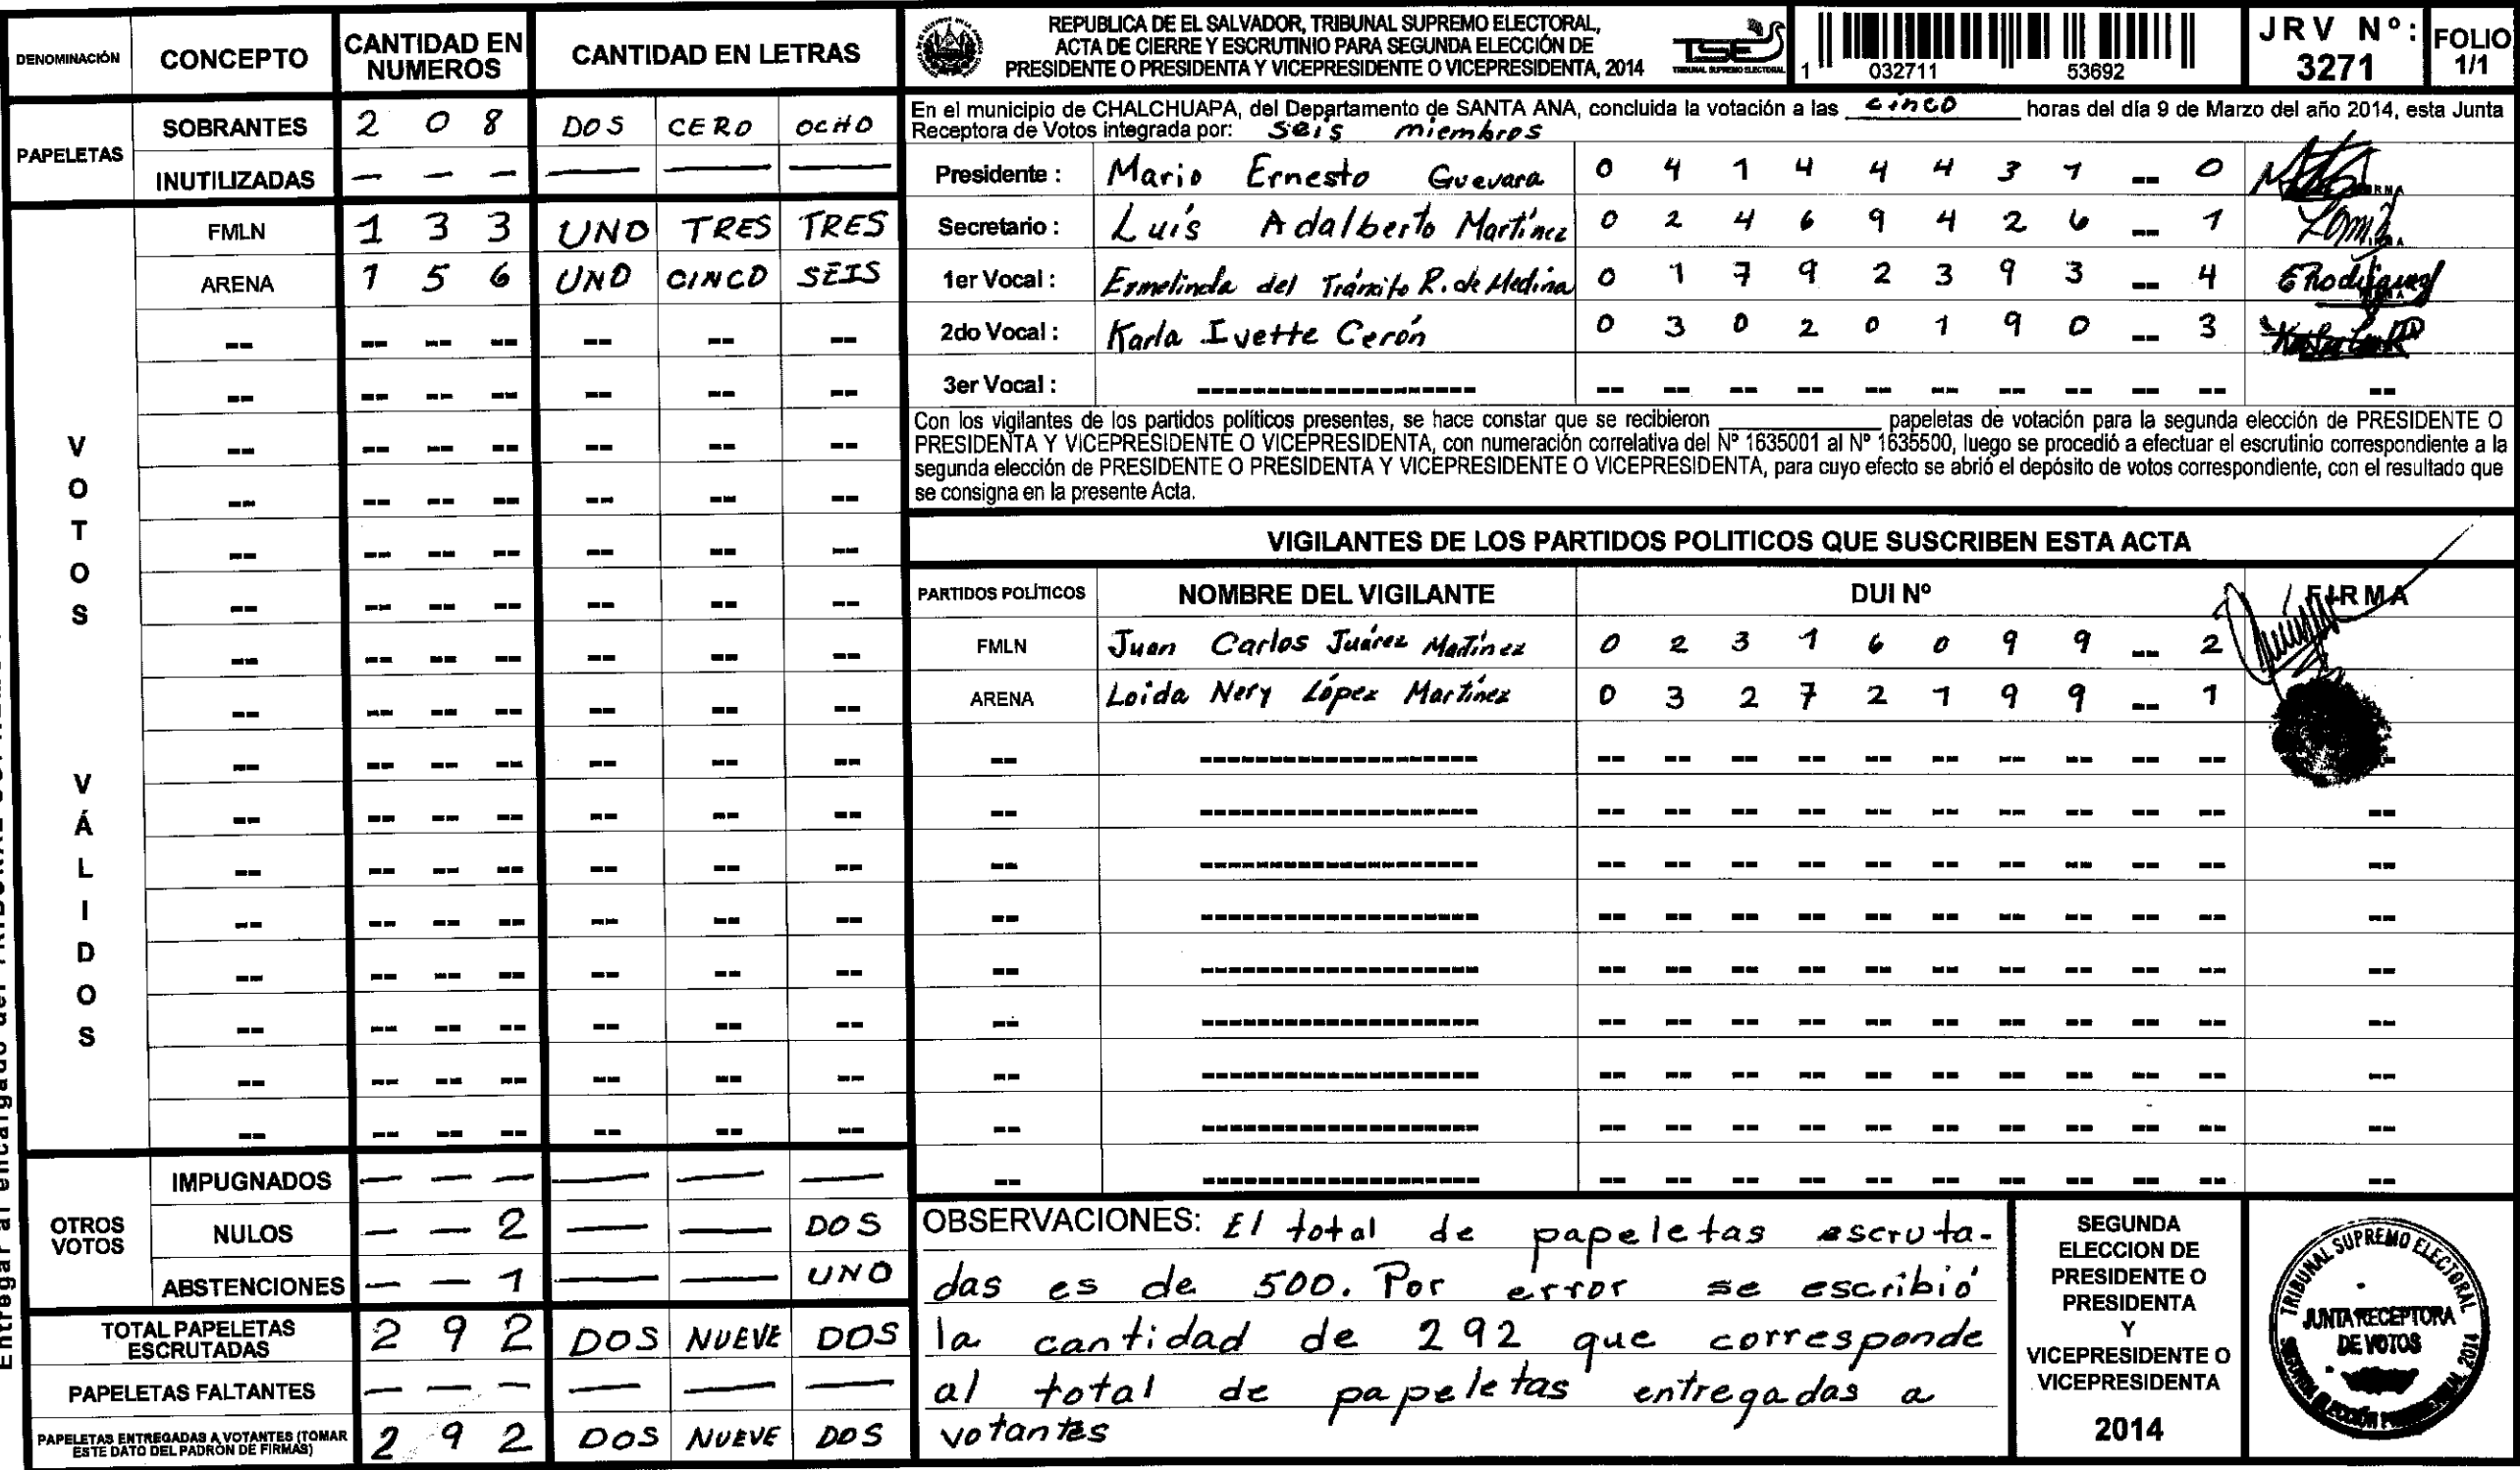 DENOMINACIÓN CONCEPTO CANTIDAD EN NUMEROS CANTIDAD EN LETRAS
PAPELETAS
SOBRANTES 2 0 8 DOS CERO OCHO
INUTILIZADAS — — — — — —
VOTOS VÁLIDOS
FMLN 1 3 3 UNO TRES TRES
ARENA 1 5 6 UNO CINCO SEIS
OTROS VOTOS
IMPUGNADOS — — — — — —
NULOS — — 2 — — DOS
ABSTENCIONES — — 1 — — UNO
TOTAL PAPELETAS ESCRUTADAS 2 9 2 DOS NUEVE DOS
PAPELETAS FALTANTES — — — — — —
PAPELETAS ENTREGADAS A VOTANTES (TOMAR ESTE DATO DEL PADRÓN DE FIRMAS) 2 9 2 DOS NUEVE DOS
Entregar al encargado del
REPUBLICA DE EL SALVADOR, TRIBUNAL SUPREMO ELECTORAL,
ACTA DE CIERRE Y ESCRUTINIO PARA SEGUNDA ELECCIÓN DE
PRESIDENTE O PRESIDENTA Y VICEPRESIDENTE O VICEPRESIDENTA, 2014
TSE
TRIBUNAL SUPREMO ELECTORAL
1 032711 53692
JRV Nº: 3271
FOLIO 1/1
En el municipio de CHALCHUAPA, del Departamento de SANTA ANA, concluida la votación a las cinco horas del día 9 de Marzo del año 2014, esta Junta
Receptora de Votos integrada por: seis miembros
Presidente : Mario Ernesto Guevara 0 4 1 4 4 4 3 1 -- 0
Secretario : Luis Adalberto Martínez 0 2 4 6 9 4 2 6 -- 1
1er Vocal : Ermelinda del Tránsito R. de Medina 0 1 7 9 2 3 9 3 -- 4 ERodriguez
2do Vocal : Karla Ivette Cerón 0 3 0 2 0 1 9 0 -- 3
3er Vocal :
Con los vigilantes de los partidos políticos presentes, se hace constar que se recibieron ________ papeletas de votación para la segunda elección de PRESIDENTE O
PRESIDENTA Y VICEPRESIDENTE O VICEPRESIDENTA, con numeración correlativa del Nº 1635001 al Nº 1635500, luego se procedió a efectuar el escrutinio correspondiente a la
segunda elección de PRESIDENTE O PRESIDENTA Y VICEPRESIDENTE O VICEPRESIDENTA, para cuyo efecto se abrió el depósito de votos correspondiente, con el resultado que
se consigna en la presente Acta.
VIGILANTES DE LOS PARTIDOS POLITICOS QUE SUSCRIBEN ESTA ACTA
PARTIDOS POLÍTICOS NOMBRE DEL VIGILANTE DUI Nº FIRMA
FMLN Juan Carlos Juárez Martínez 0 2 3 1 6 0 9 9 -- 2
ARENA Loida Nery López Martínez 0 3 2 7 2 1 9 9 -- 1
OBSERVACIONES: El total de papeletas escruta-
das es de 500. Por error se escribió
la cantidad de 292 que corresponde
al total de papeletas entregadas a
votantes
SEGUNDA
ELECCION DE
PRESIDENTE O
PRESIDENTA
Y
VICEPRESIDENTE O
VICEPRESIDENTA
2014
TRIBUNAL SUPREMO ELECTORAL
JUNTA RECEPTORA
DE VOTOS